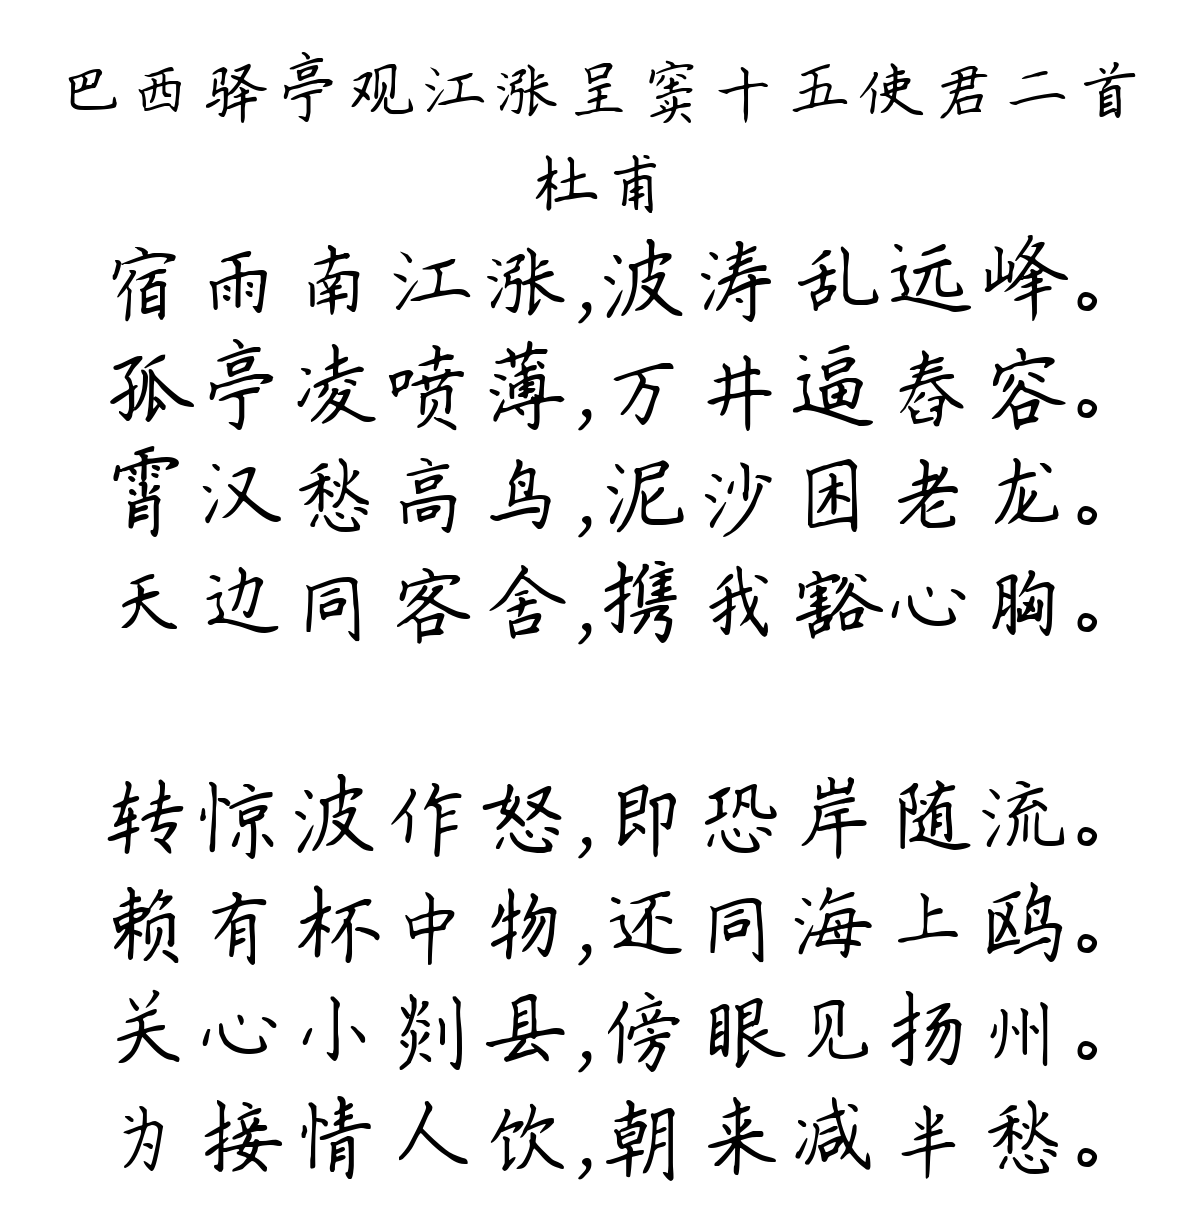 巴西驿亭观江涨呈窦十五使君二首
杜甫
宿雨南江涨,波涛乱远峰。
孤亭凌喷薄,万井逼舂容。
霄汉愁高鸟,泥沙困老龙。
天边同客舍,携我豁心胸。
转惊波作怒,即恐岸随流。
赖有杯中物,还同海上鸥。
关心小剡县,傍眼见扬州。
为接情人饮,朝来减半愁。